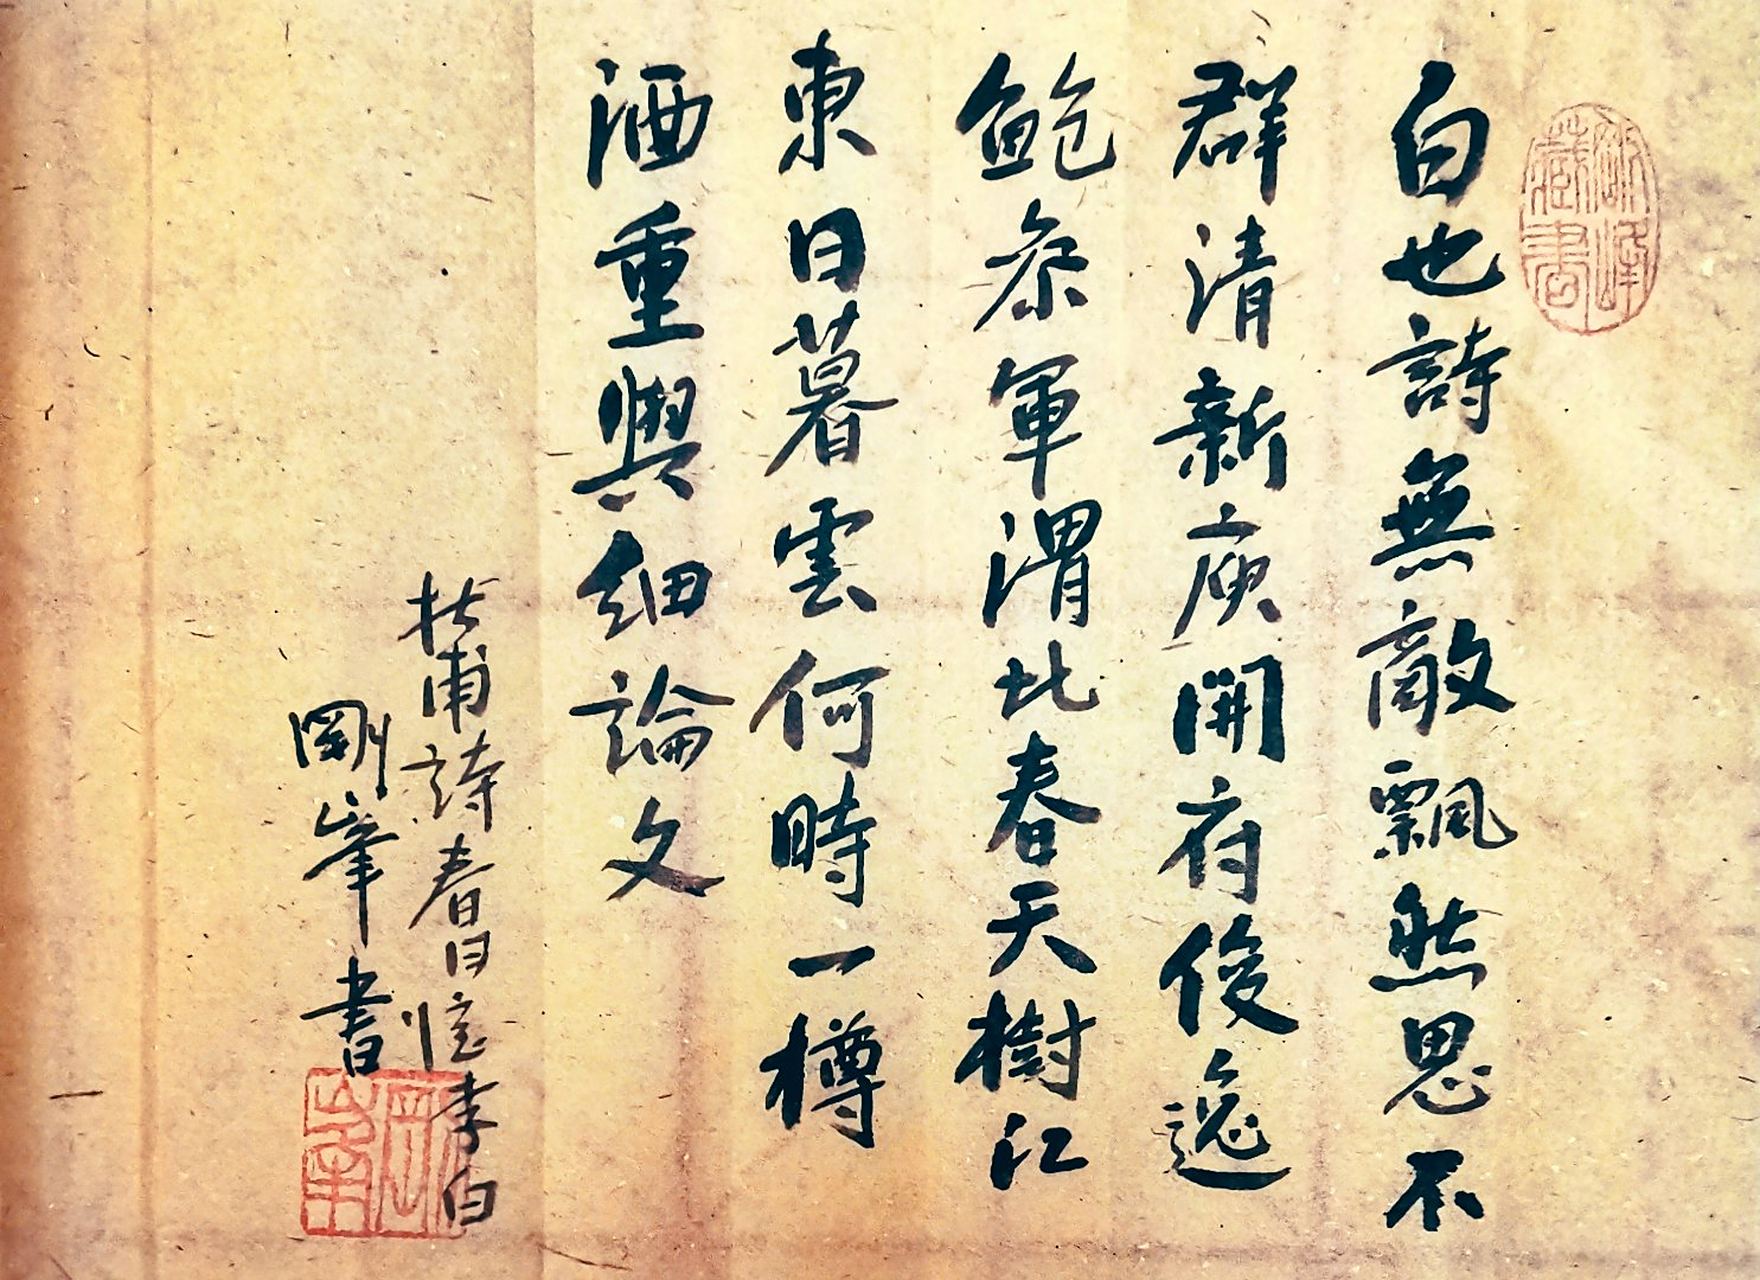 白也詩無敵飄然思不
群清新庾開府俊逸
鮑參軍渭北春天樹江
東日暮雲何時一樽
酒重與細論文
杜甫詩春日憶李白
剛峯書